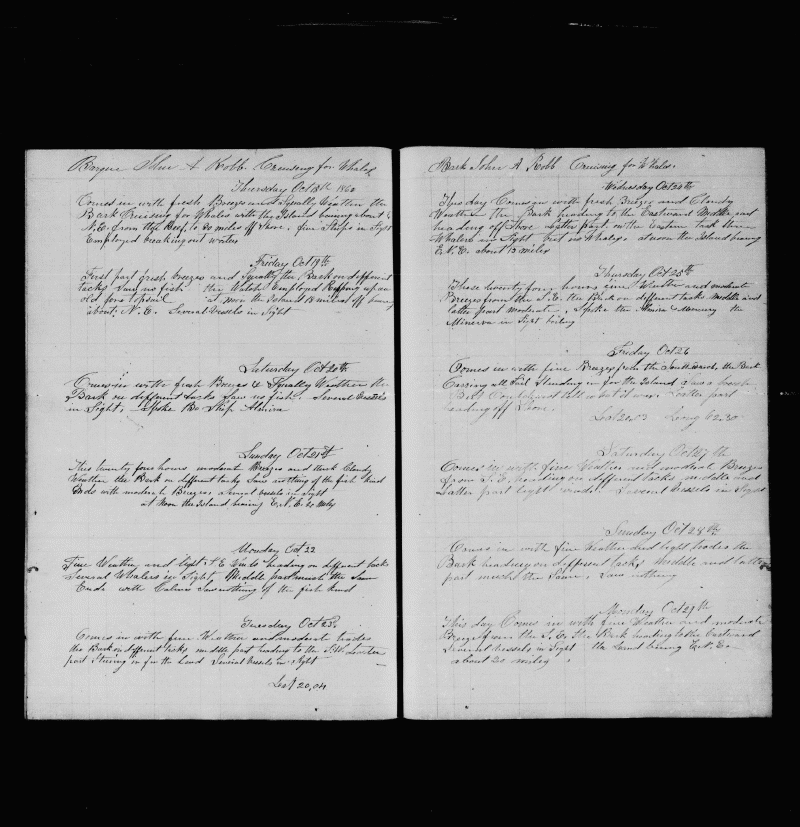 Barque John A Robb Cruising for Whales
Thursday Oct 18th 1860
Comes in with fresh Breezes and Squally Weather the
Bark Cruising for Whales with the Island bearing about
N.E. from the Reef to 20 miles off Shore. five Ships in Sight
Employed breaking out water
Friday Oct 19th
First part fresh breezes and Squally the Bark on different
tacks Saw no fish the Watch Employed Ripping up an
old fore topsail at noon the Island 15 miles off bearing
about N.E. Several Vessels in Sight
Saturday Oct 20th
Comes in with fresh Breezes & Squally Weather the
Bark on different tacks Saw no fish. Several Vessels
in Sight. Spoke Ship Almira
Sunday Oct 21st
This twenty four hours moderate Breezes and thick Cloudy
Weather the Bark on different tacks Saw nothing of the fish kind
Ends with moderate Breezes Several vessels in Sight
at Noon the Island bearing E.N.E. 20 miles
Monday Oct 22
Fine Weather and light S.E. Winds heading on different tacks
Several Whalers in Sight Middle part much the Same
Ends with Calms Saw nothing of the fish kind
Tuesday Oct 23
Comes in with fine Weather and moderate trades
the Bark on different tacks middle part heading to the S.W. Latter
part Steering in for the Land Several Vessels in Sight
Lat 20,04
Bark John A Robb Cruising for Whales
Wednesday Oct 24th
This day Comes in with fresh Breezes and Cloudy
Weather the Bark heading to the Eastward Middle part
heading off Shore Latter part on the Eastern tack three
Whalers in Sight but no Whales at noon the Island bearing
E.N.E. about 15 miles
Thursday Oct 25th
These twenty four hours fine Weather and moderate
Breezes from the S.E. the Bark on different tacks middle and
latter part moderate. Spoke the Almira & Mercury the
Minerva in Sight boiling
Friday Oct 26
Comes in with fine Breezes from the Southward, the Bark
Carrying all Sail Standing in for the Island
But Could not tell what it was Latter part
heading off Shore.
Lat 20.03 Long 62.30
Saturday Oct 27th
Comes in with fine Weather and moderate Breezes
from S.E. heading on different tacks middle and
Latter part light winds Several vessels in Sight
Sunday Oct 28th
Comes in with fine Weather and light trades the
Bark heading on different tacks Middle and latter
part much the Same. Saw nothing
Monday Oct 29th
This day Comes in with fine Weather and moderate
Breezes from the S.E. the Bark heading to the Eastward
Several vessels in Sight the Land bearing E.N.E.
about 20 miles